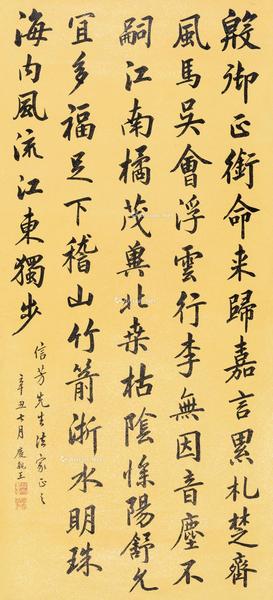 殿御正銜命来歸嘉言累札楚齊
風馬吳會浮雲行李無因音塵不
嗣江南橘茂冀北桒枯陰慘陽舒允
宜多福足下稽山竹箭浙水明珠
海内風流江東獨步
信芳先生法家正之
辛丑七月 慶親王